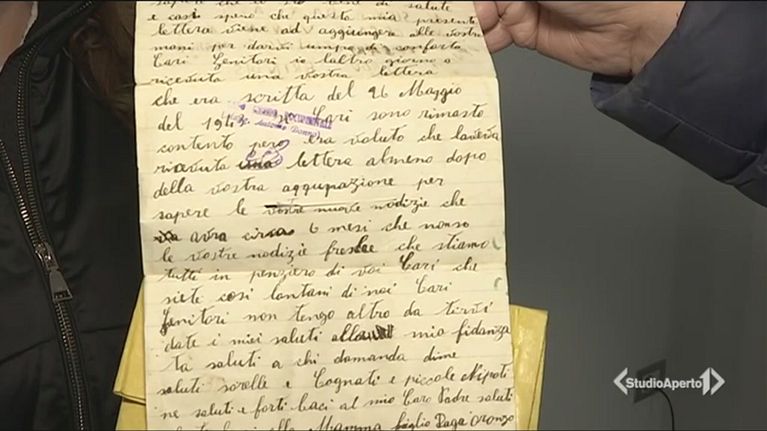 sapere che
e così spero che questo mia presente
lettera viene ad aggiungere alle vostre
mani per darvi umpo di conforto
Cari Genitori io laltro giorno o
riceuta una vostra lettera
che era scritta del 26 Maggio
del 1943 Cari sono rimasto
contento però era valuto che laveva
riceuta una lettera almeno dopo
della vostra aggupazione per
sapere le vostre nuove nodizie che
avra circa 6 mesi che nonso
le vostre nodizie freshe che stiamo
tutti in penziero di voi Cari che
siete così lontani di noi Cari
Genitori non tengo altro da tirvi
date i miei saluti alla mio fidanza
ta saluti a chi domanda dime
saluti sorelle e Cognati e piccole Nipoti
ne saluti e forti baci al mio Caro Padre saluti
alla Mamma figlio Daga Oronzo
StudioAperto